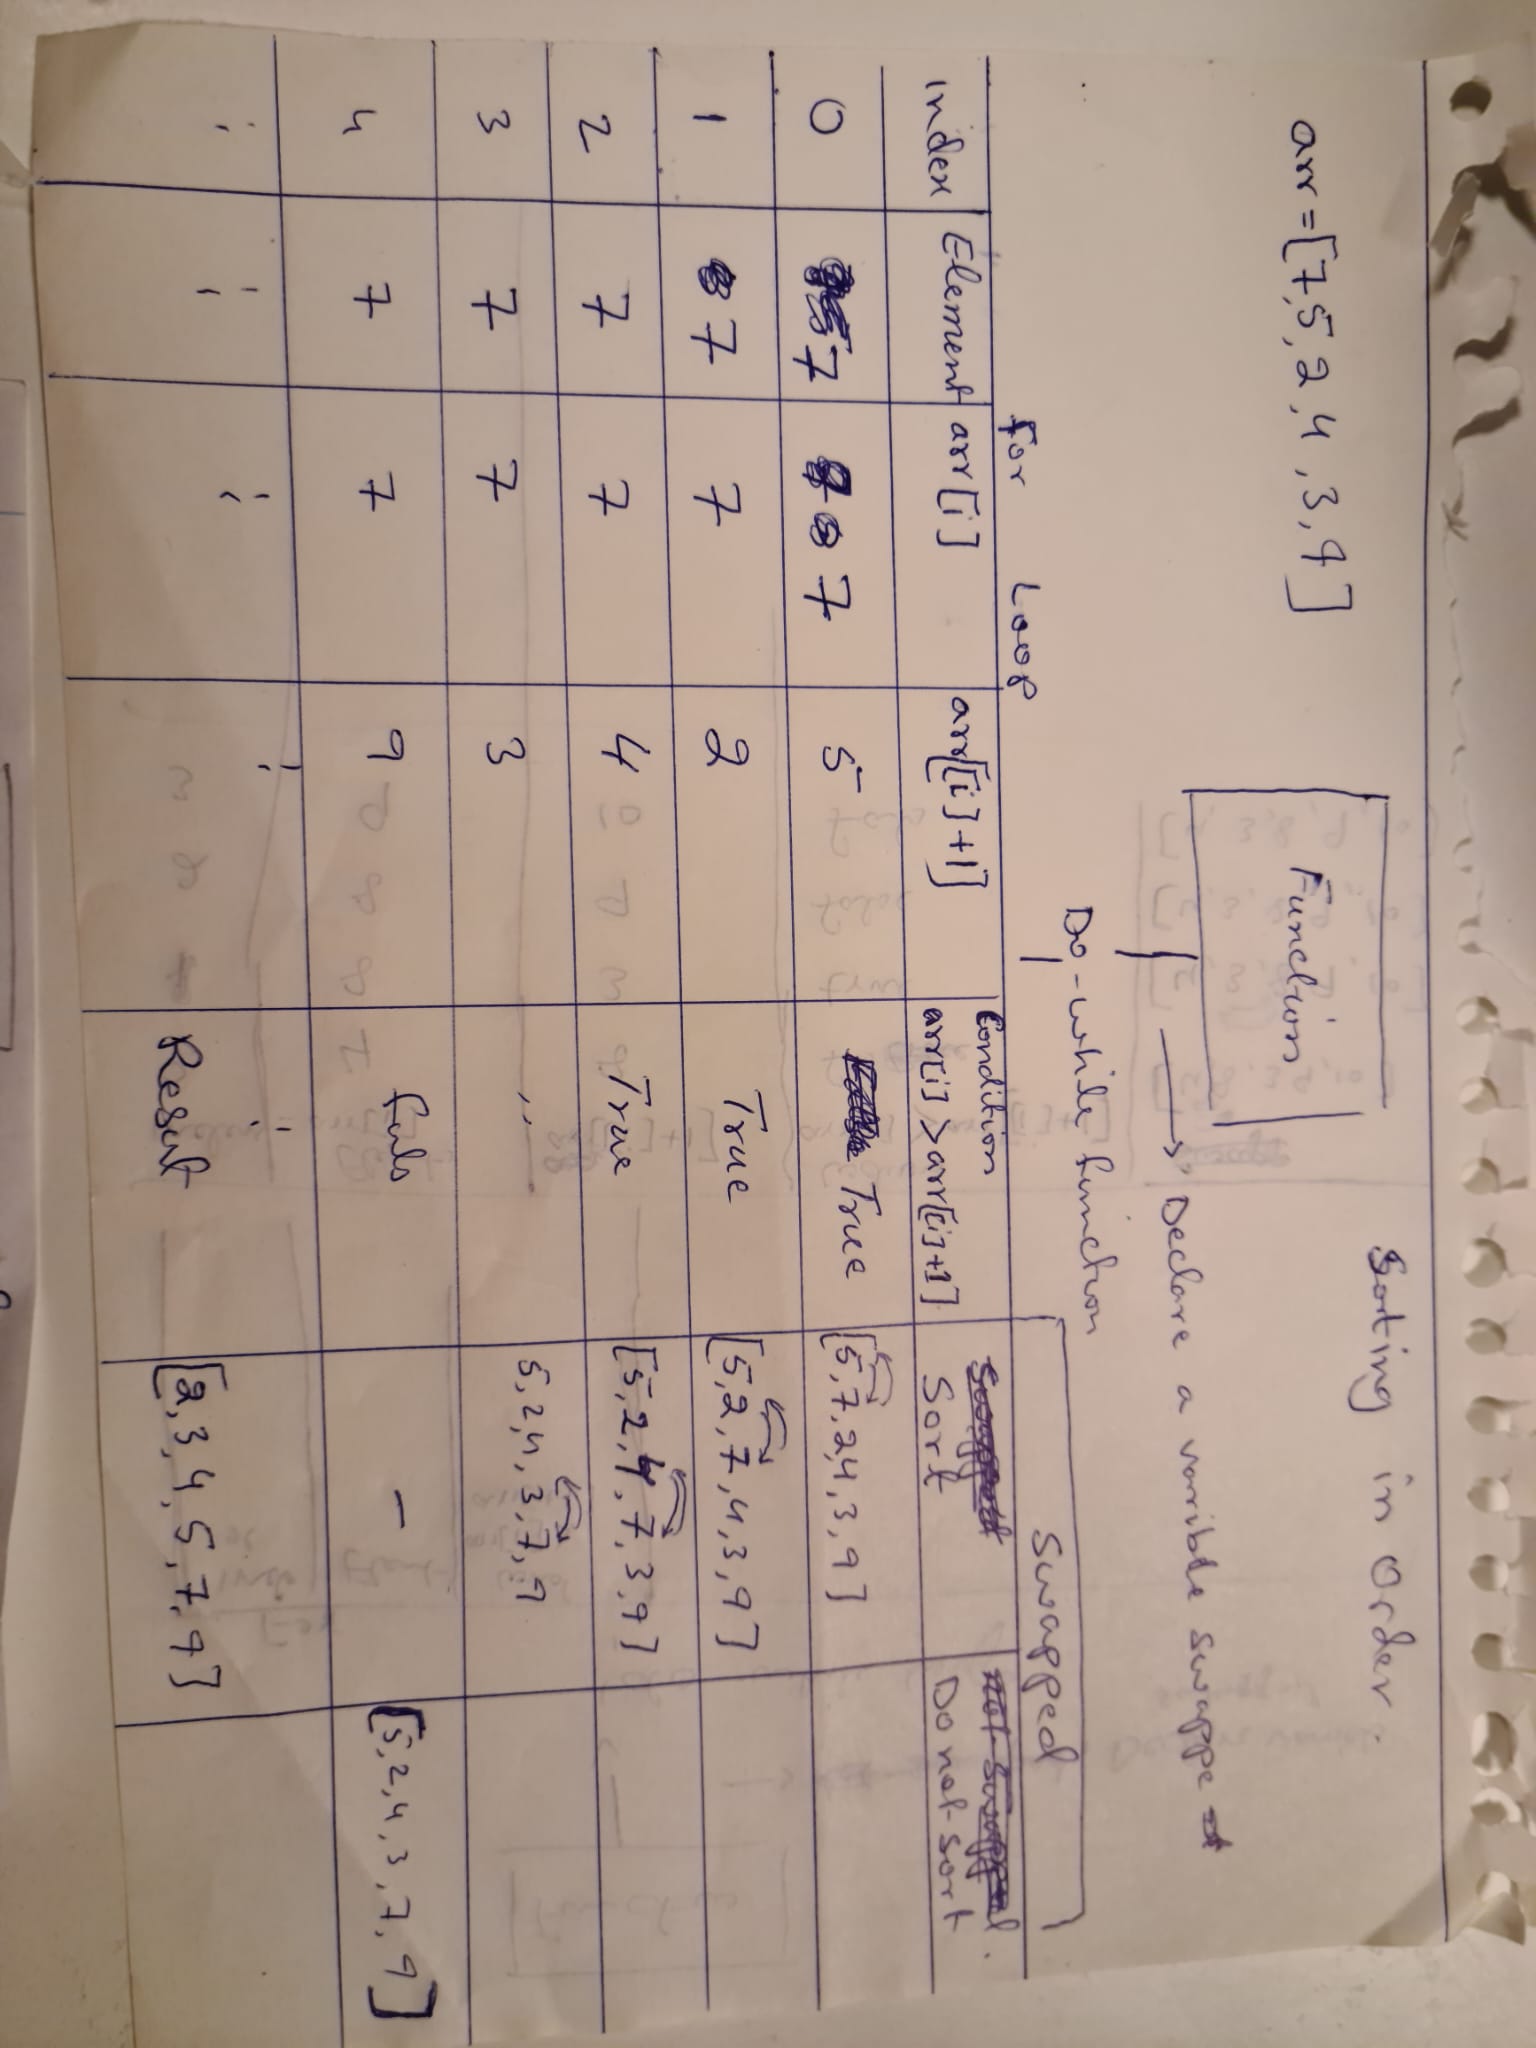 Sorting in order.
arr = [7,5,2,4,3,9]
Function
Declare a varible swappe
Do-while function
For Loop
Swapped
Index Element arr[i] arr[[i]+1] Condition arr[i] > arr[[i]+1] Sort Do not sort
0 7 7 5 True [5,7,2,4,3,9]
1 7 7 2 True [5,2,7,4,3,9]
2 7 7 4 True [5,2,4,7,3,9]
3 7 7 3 " 5,2,4,3,7,9
4 7 7 9 fals - [5,2,4,3,7,9]
Result [2,3,4,5,7,9]